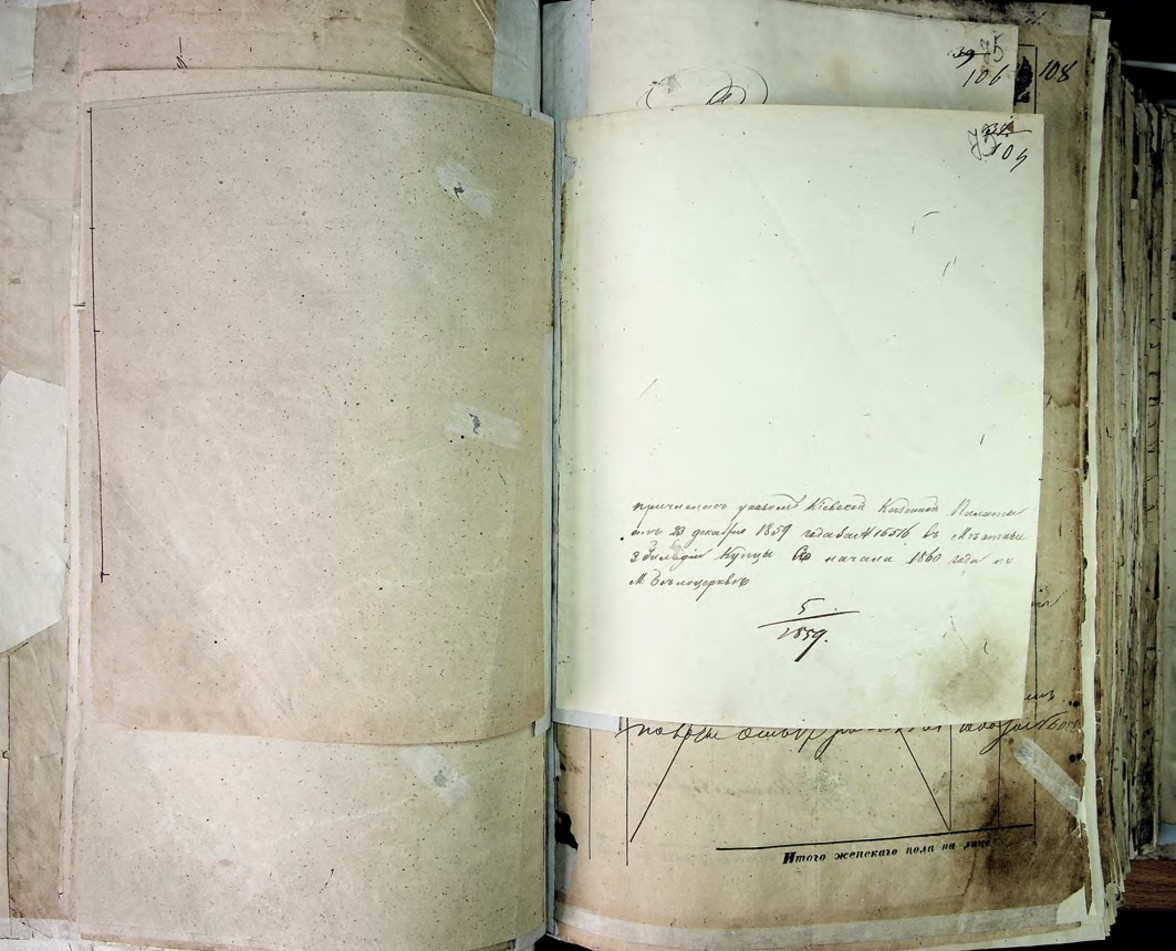 39 75
106
108
104
причисленъ указомъ Кіевской Казенной Палаты
отъ 23 декабря 1859 года за № 16516 въ Мѣстные
3 Гильдіи Купцы Съ начала 1860 года по
М. Бѣлоцерквѣ
5
1859.
Итого женскаго пола на лицо